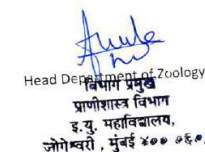 Head Department of Zoology
विभाग प्रमुख
प्राणीशास्त्र विभाग
इ. यु. महाविद्यालय,
जोगेश्वरी , मुंबई ४०० ०६०.